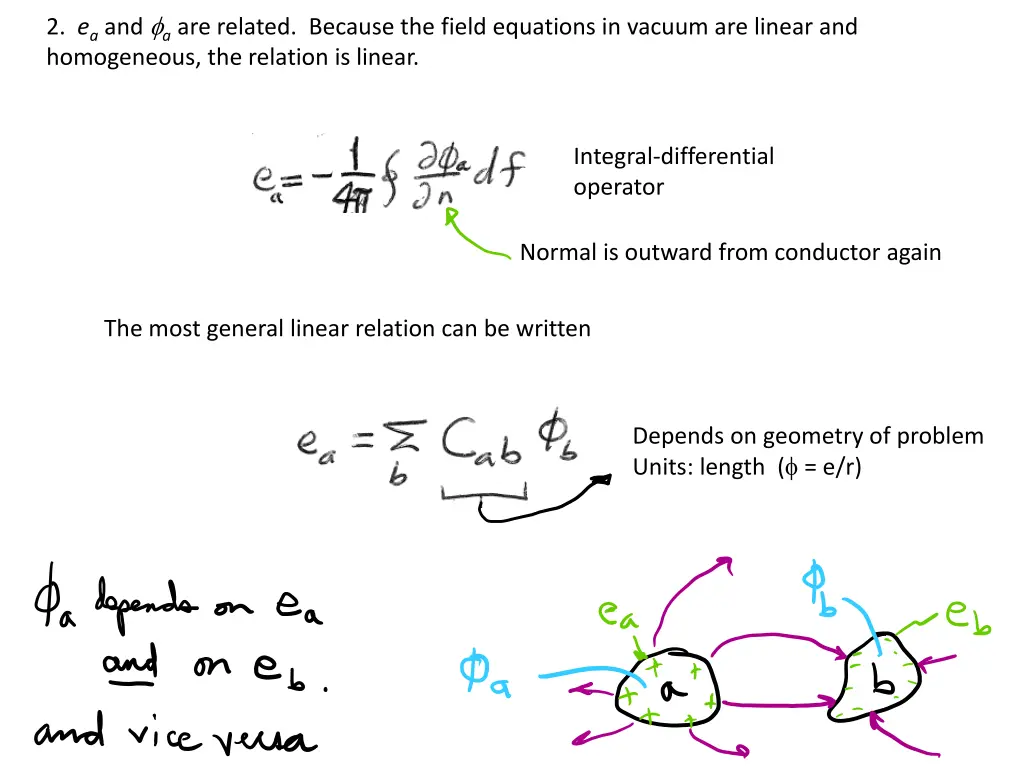 2. eₐ and ϕₐ are related. Because the field equations in vacuum are linear and
homogeneous, the relation is linear.
eₐ = - 1/4π ∮ ∂ϕₐ/∂n df
Integral-differential
operator
Normal is outward from conductor again
The most general linear relation can be written
eₐ = Σ_b C_ab ϕ_b
Depends on geometry of problem
Units: length (ϕ = e/r)
ϕₐ depends on eₐ
and on e_b.
and vice versa
eₐ
ϕ_b
e_b
ϕₐ
a
b